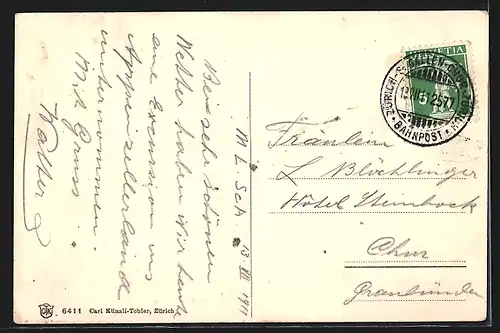 M. L. Sch. 13. VII 1911
Bei sehr schönem
Wetter haben wir heute
eine Excursion ins
Appenzellerland
unternommen.
Mit Gruss
Walter
HELVETIA
BAHNPOST
Fräulein
L. Blöchlinger
Hôtel Steinbock
Chur
Graubünden
6411 Carl Künzli-Tobler, Zürich